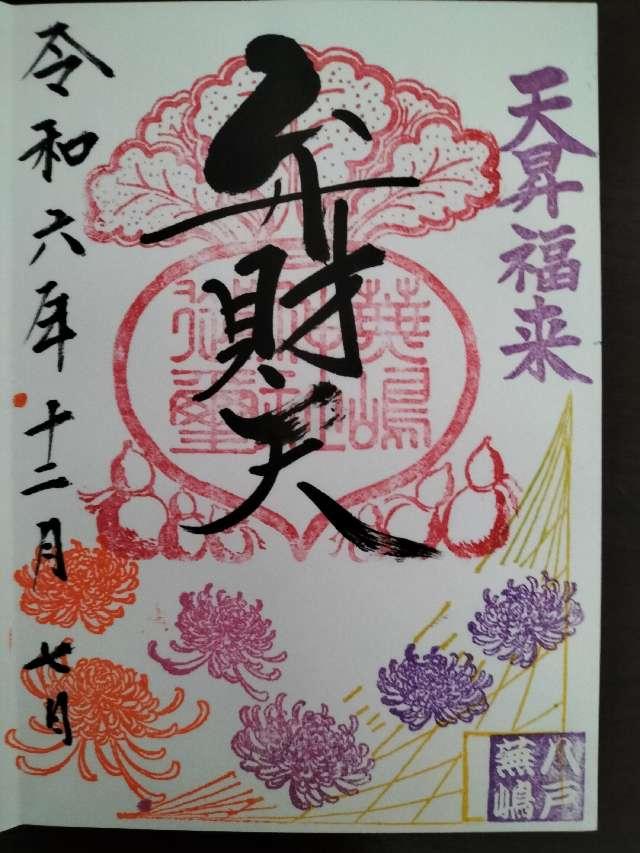 天昇福来
弁財天
蕪嶋神社
御神璽
令和六年十二月七日
八戸
蕪嶋